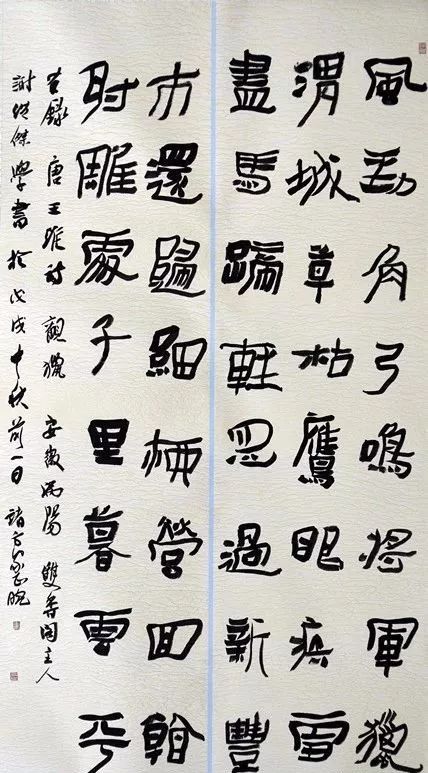 風勁角弓鳴將軍獵
渭城草枯鷹眼疾雪
盡馬蹄輕忽過新豐
市還歸細柳營回看
射雕處千里暮雲平
錄 唐王維詩 觀獵 安徽渦陽 雙 閣主人
謝 傑學書於戊戌中秋前一日